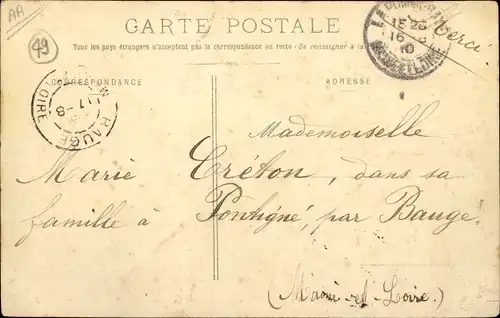 AA
49
CARTE POSTALE
Tous les pays étrangers n'acceptent pas la correspondance au recto (Se renseigner à la
CORRESPONDANCE
ADRESSE
15 20
16
10
17-8
BAUGÉ
LOIRE
Mademoiselle
Marie Créton, dans sa
famille à Pontigné, par Baugé.
(Maine-et-Loire.)